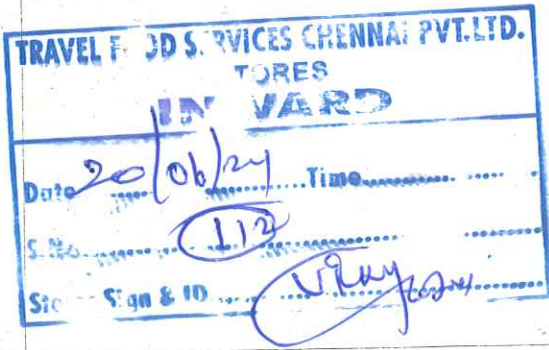 TRAVEL F OD S RVICES CHENNAI PVT.LTD.
TORES
IN WARD
Date 20/06/24 Time
S.No 112
Sto Sign & ID